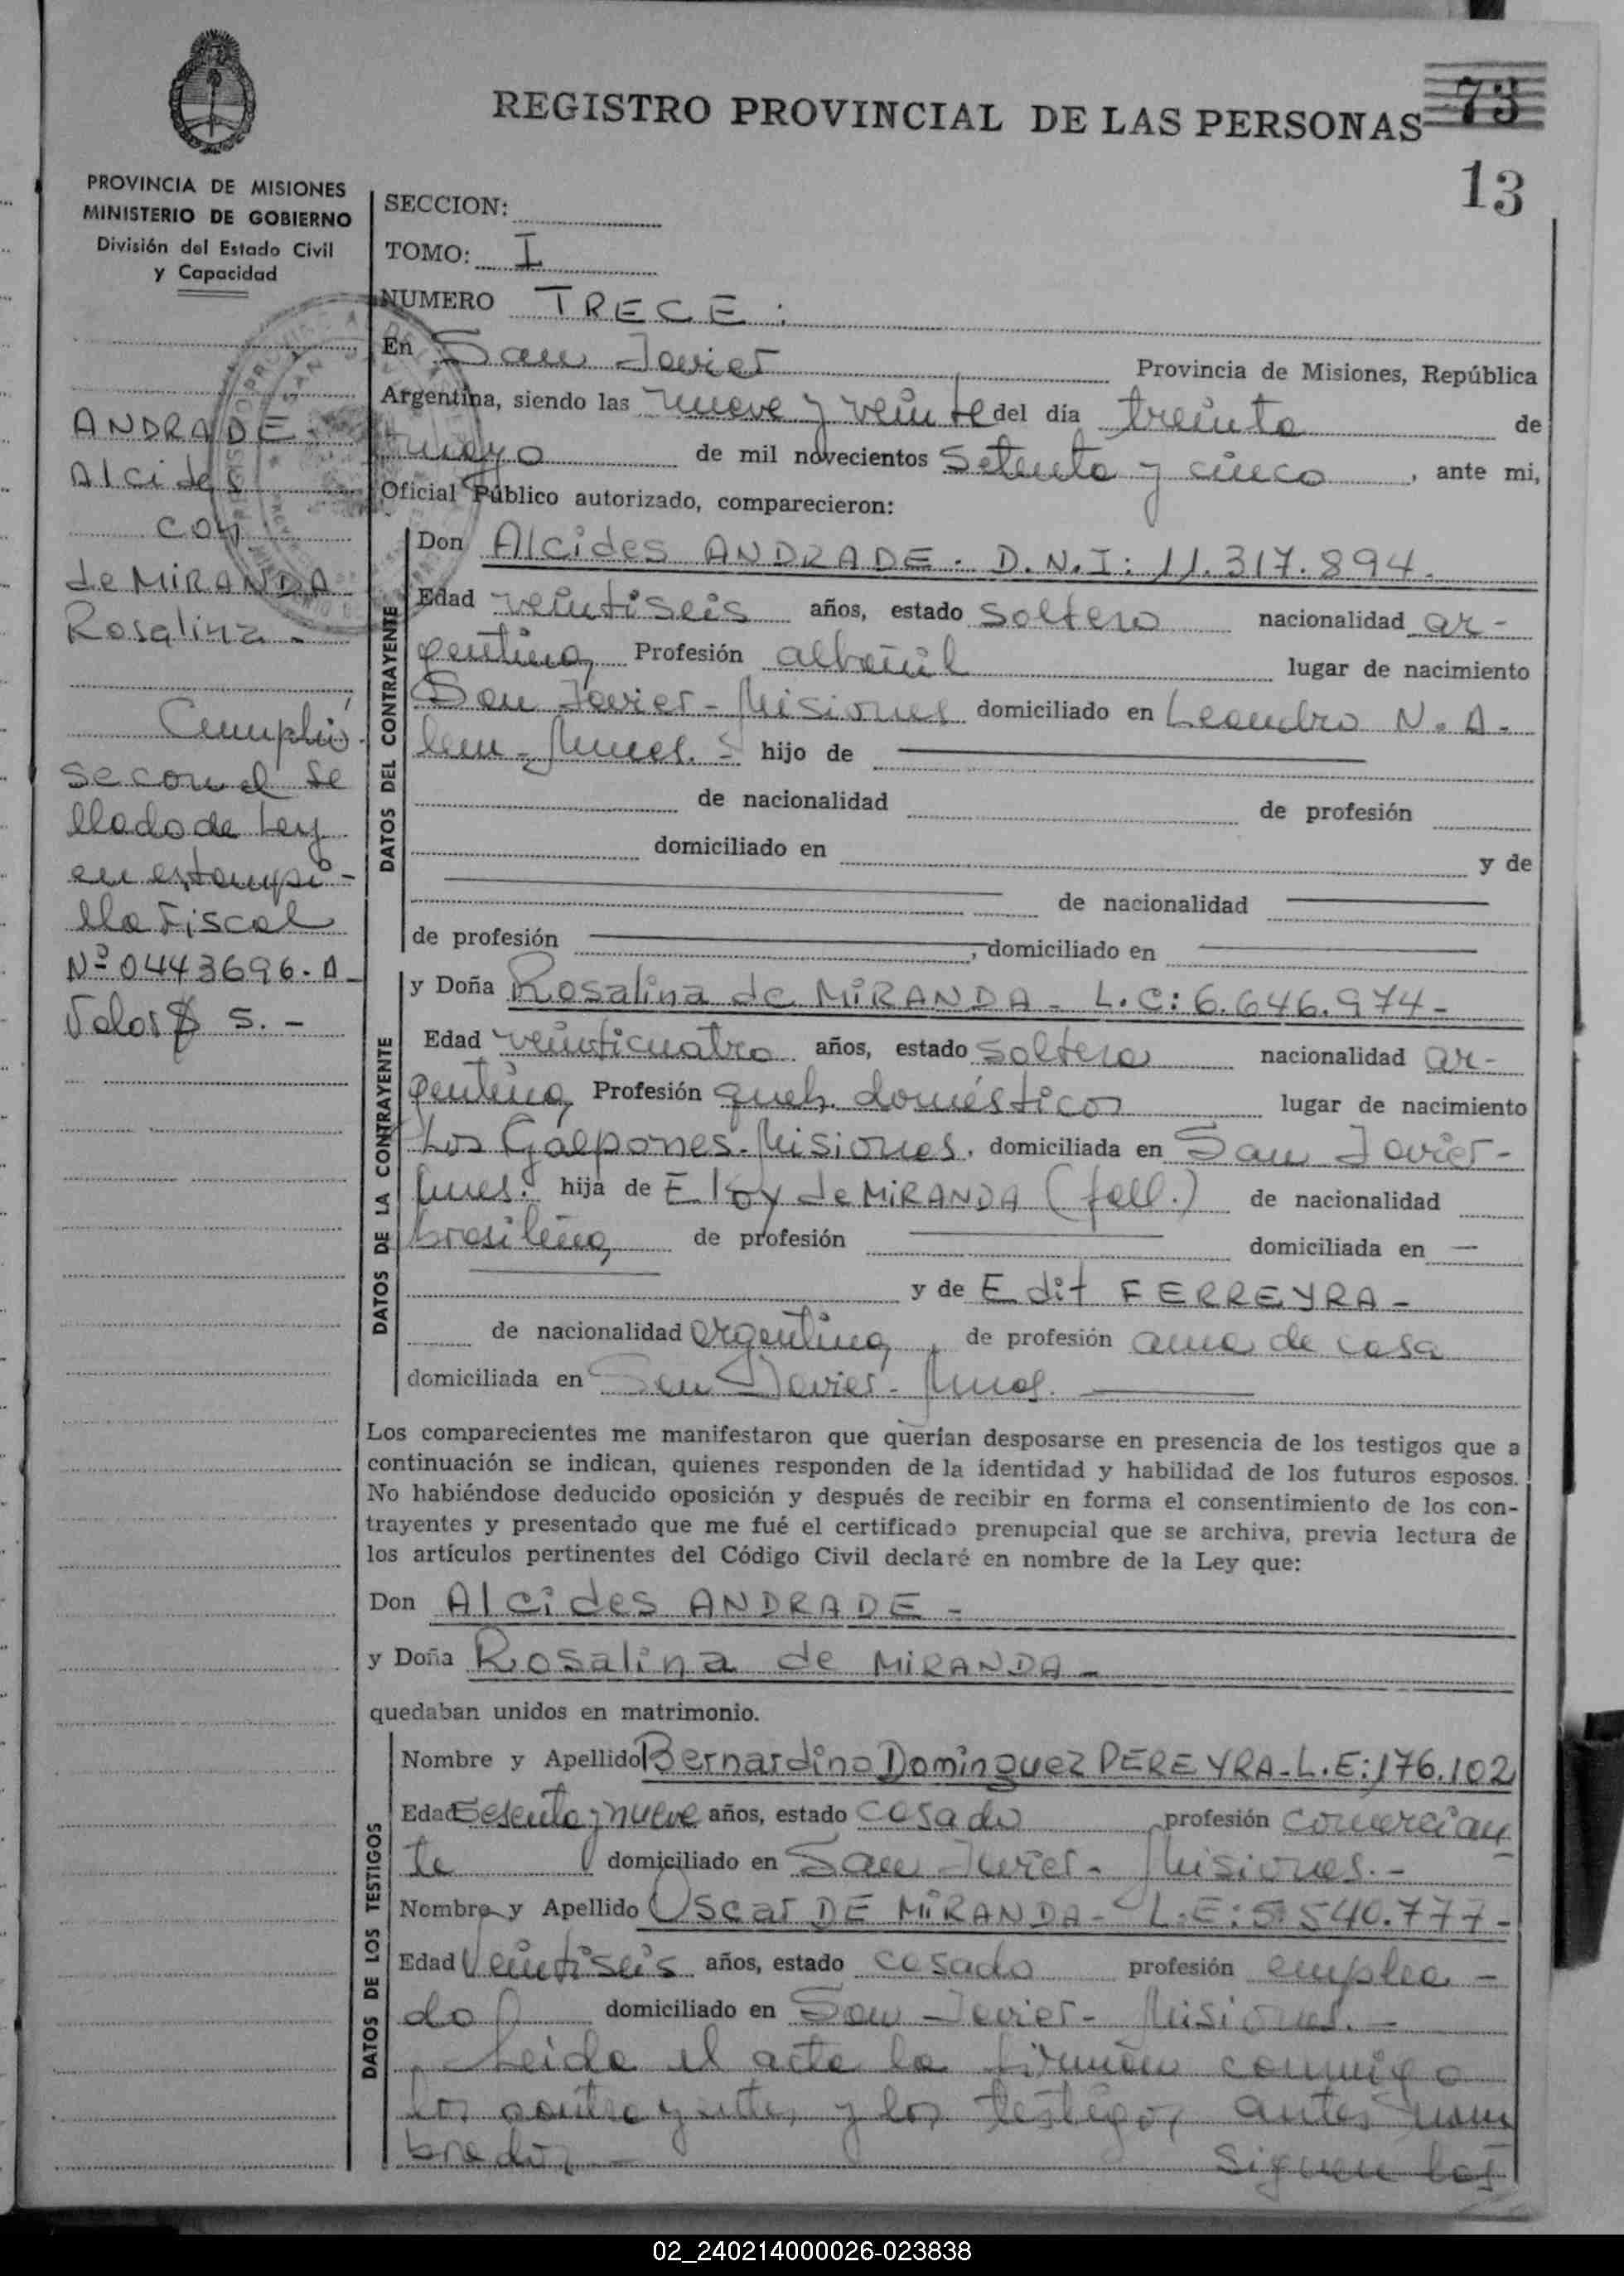 REGISTRO PROVINCIAL DE LAS PERSONAS 73
13
PROVINCIA DE MISIONES
MINISTERIO DE GOBIERNO
División del Estado Civil
y Capacidad
ANDRADE
Alcides
con
de MiRANDA
Rosalina -
Cumplió
se con el se
llado de Ley
en estampi-
lla Fiscal
Nº 0443696.A-
Valor $ 5.-
SECCION:
TOMO: I
NUMERO TRECE.
En San Javier Provincia de Misiones, República
Argentina, siendo las nueve y veinte del día treinta de
mayo de mil novecientos Setenta y cinco, ante mi,
Oficial Público autorizado, comparecieron:
DATOS DEL CONTRAYENTE
Don Alcides ANDRADE. D.N.I: 11.317.894.
Edad veintiseis años, estado soltero nacionalidad ar-
gentina, Profesión albañil lugar de nacimiento
San Javier-Misiones domiciliado en Leandro N. A-
lem-Mnes.- hijo de
de nacionalidad de profesión
domiciliado en y de
de nacionalidad
de profesión , domiciliado en
DATOS DE LA CONTRAYENTE
y Doña Rosalina de MiRANDA - L.C: 6.646.974-
Edad veinticuatro años, estado soltera nacionalidad ar-
gentina, Profesión queh. domésticos lugar de nacimiento
Los Galpones-Misiones, domiciliada en San Javier-
Mnes. hija de Eloy de MiRANDA (fall.) de nacionalidad
brasileña, de profesión domiciliada en —
y de Edit FERREYRA-
de nacionalidad argentina, de profesión ama de casa
domiciliada en San Javier- Mnes.
Los comparecientes me manifestaron que querían desposarse en presencia de los testigos que a
continuación se indican, quienes responden de la identidad y habilidad de los futuros esposos.
No habiéndose deducido oposición y después de recibir en forma el consentimiento de los con-
trayentes y presentado que me fué el certificado prenupcial que se archiva, previa lectura de
los artículos pertinentes del Código Civil declaré en nombre de la Ley que:
Don Alcides ANDRADE-
y Doña Rosalina de MiRANDA-
quedaban unidos en matrimonio.
DATOS DE LOS TESTIGOS
Nombre y Apellido Bernardino Dominguez PEREYRA-L.E: 176.102
Edad Sesenta y nueve años, estado casado profesión comercian
te domiciliado en San Javier- Misiones.-
Nombre y Apellido Oscar DE MiRANDA- L.E: 5.540.777-
Edad Veintiseis años, estado casado profesión emplea-
do domiciliado en San Javier- Misiones.-
Leida el acta la firman conmigo
los contrayentes y los testigos antes nom
brados- Siguen las
02_240214000026-023838